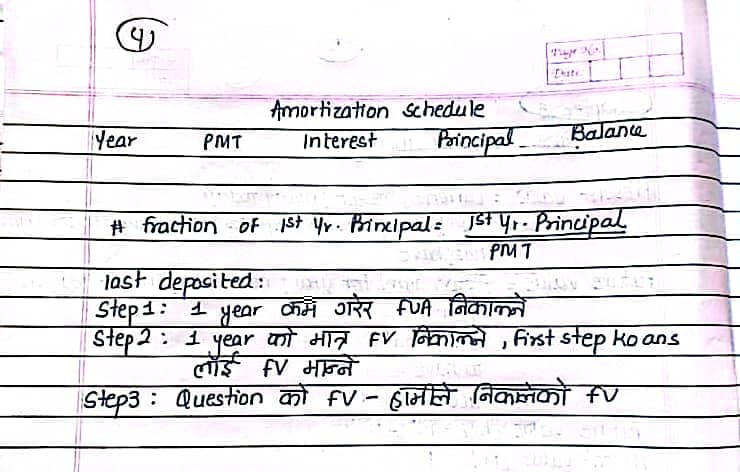 4
Page No.
Date
Amortization Schedule
Year PMT Interest Principal Balance
# fraction of 1st Yr. Principal = 1st Yr. Principal
PMT
last deposited:
Step 1: 1 year कम गरेर FVA निकाल्ने
Step 2: 1 year को मात्र FV निकाल्ने, first step ko ans
लाई FV मान्ने
Step3: Question को FV - हामीले निकालेको FV